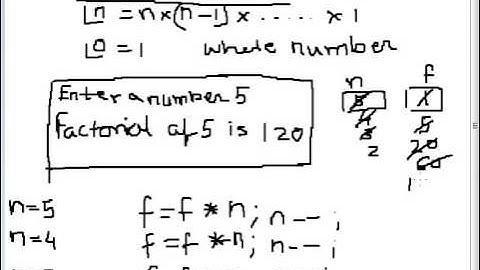 ⌊n = n×(n-1)× ...... × 1
⌊0 = 1 whole number
Enter a number 5
Factorial of 5 is 120
n f
5 1
4 5
3 20
2 60
1
n=5 f=f*n; n--;
n=4 f=f*n; n--;